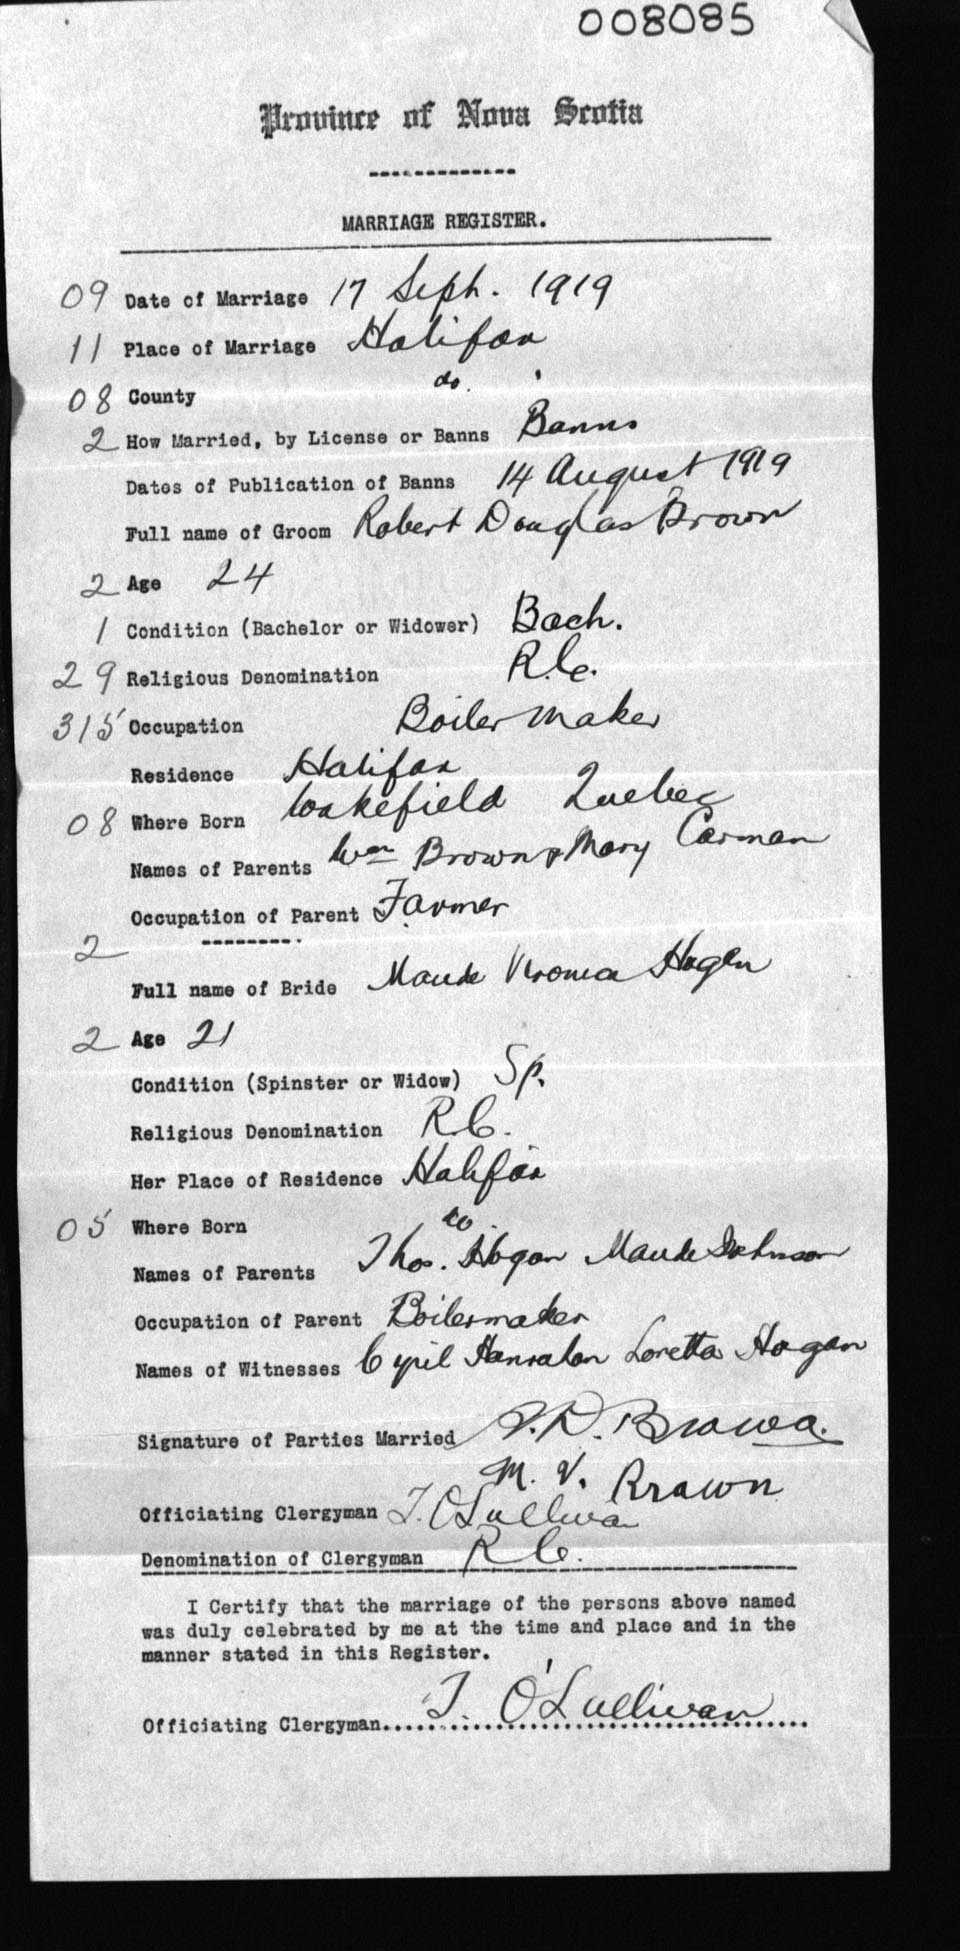 008085
Province of Nova Scotia
MARRIAGE REGISTER.
09 Date of Marriage 17 Seph. 1919
11 Place of Marriage Halifax
08 County do.
2 How Married, by License or Banns Banns
Dates of Publication of Banns 14 August 1919
Full name of Groom Robert Douglas Brown
2 Age 24
1 Condition (Bachelor or Widower) Bach.
29 Religious Denomination R.C.
315 Occupation Boiler Maker
Residence Halifax
08 Where Born Wakefield Quebec
Names of Parents Wm Brown & Mary Carman
Occupation of Parent Farmer
2
Full name of Bride Maude Veronica Hogan
2 Age 21
Condition (Spinster or Widow) Sp.
Religious Denomination R.C.
Her Place of Residence Halifax
05 Where Born do
Names of Parents Thos. Hogan Maude Johnson
Occupation of Parent Boilermaker
Names of Witnesses Cyril Hanrahan Loretta Hogan
Signature of Parties Married D. Brown
M. V. Brown
Officiating Clergyman T. O'Sullivan
Denomination of Clergyman R C.
I Certify that the marriage of the persons above named
was duly celebrated by me at the time and place and in the
manner stated in this Register.
Officiating Clergyman T. O'Sullivan